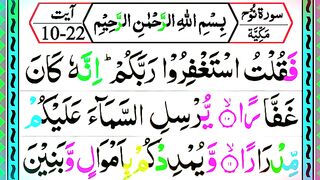 سورة نُوْح مَكِّيَّة
بِسْمِ اللهِ الرَّحْمٰنِ الرَّحِيْمِ
آیت 10-22
فَقُلْتُ اسْتَغْفِرُوْا رَبَّكُمْ ؕ اِنَّهٗ كَانَ
غَفَّارًا ۙ﴿۱۰﴾ يُّرْسِلِ السَّمَآءَ عَلَيْكُمْ
مِّدْرَارًا ۙ﴿۱۱﴾ وَّيُمْدِدْكُمْ بِاَمْوَالٍ وَّبَنِيْنَ